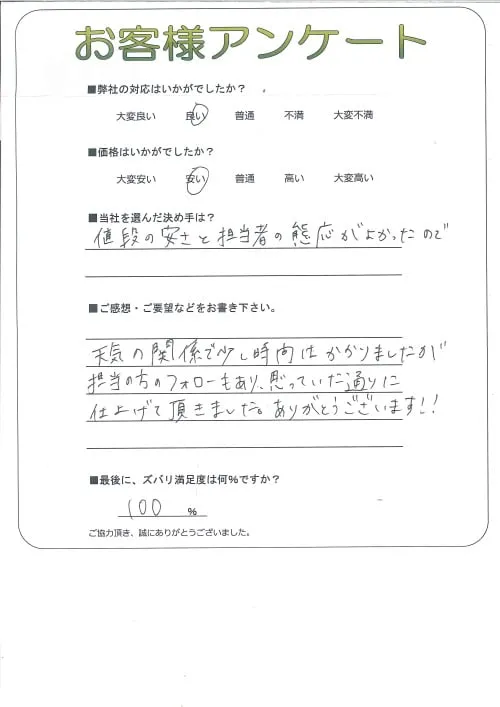 お客様アンケート
■弊社の対応はいかがでしたか？
大変良い 良い 普通 不満 大変不満
■価格はいかがでしたか？
大変安い 安い 普通 高い 大変高い
■当社を選んだ決め手は？
値段の安さと担当者の態応がよかったので
■ご感想・ご要望などをお書き下さい。
天気の関係で少し時間はかかりましたが
担当の方のフォローもあり、思っていた通りに
仕上げて頂きました。ありがとうございます!!
■最後に、ズバリ満足度は何%ですか？
100 %
ご協力頂き、誠にありがとうございました。